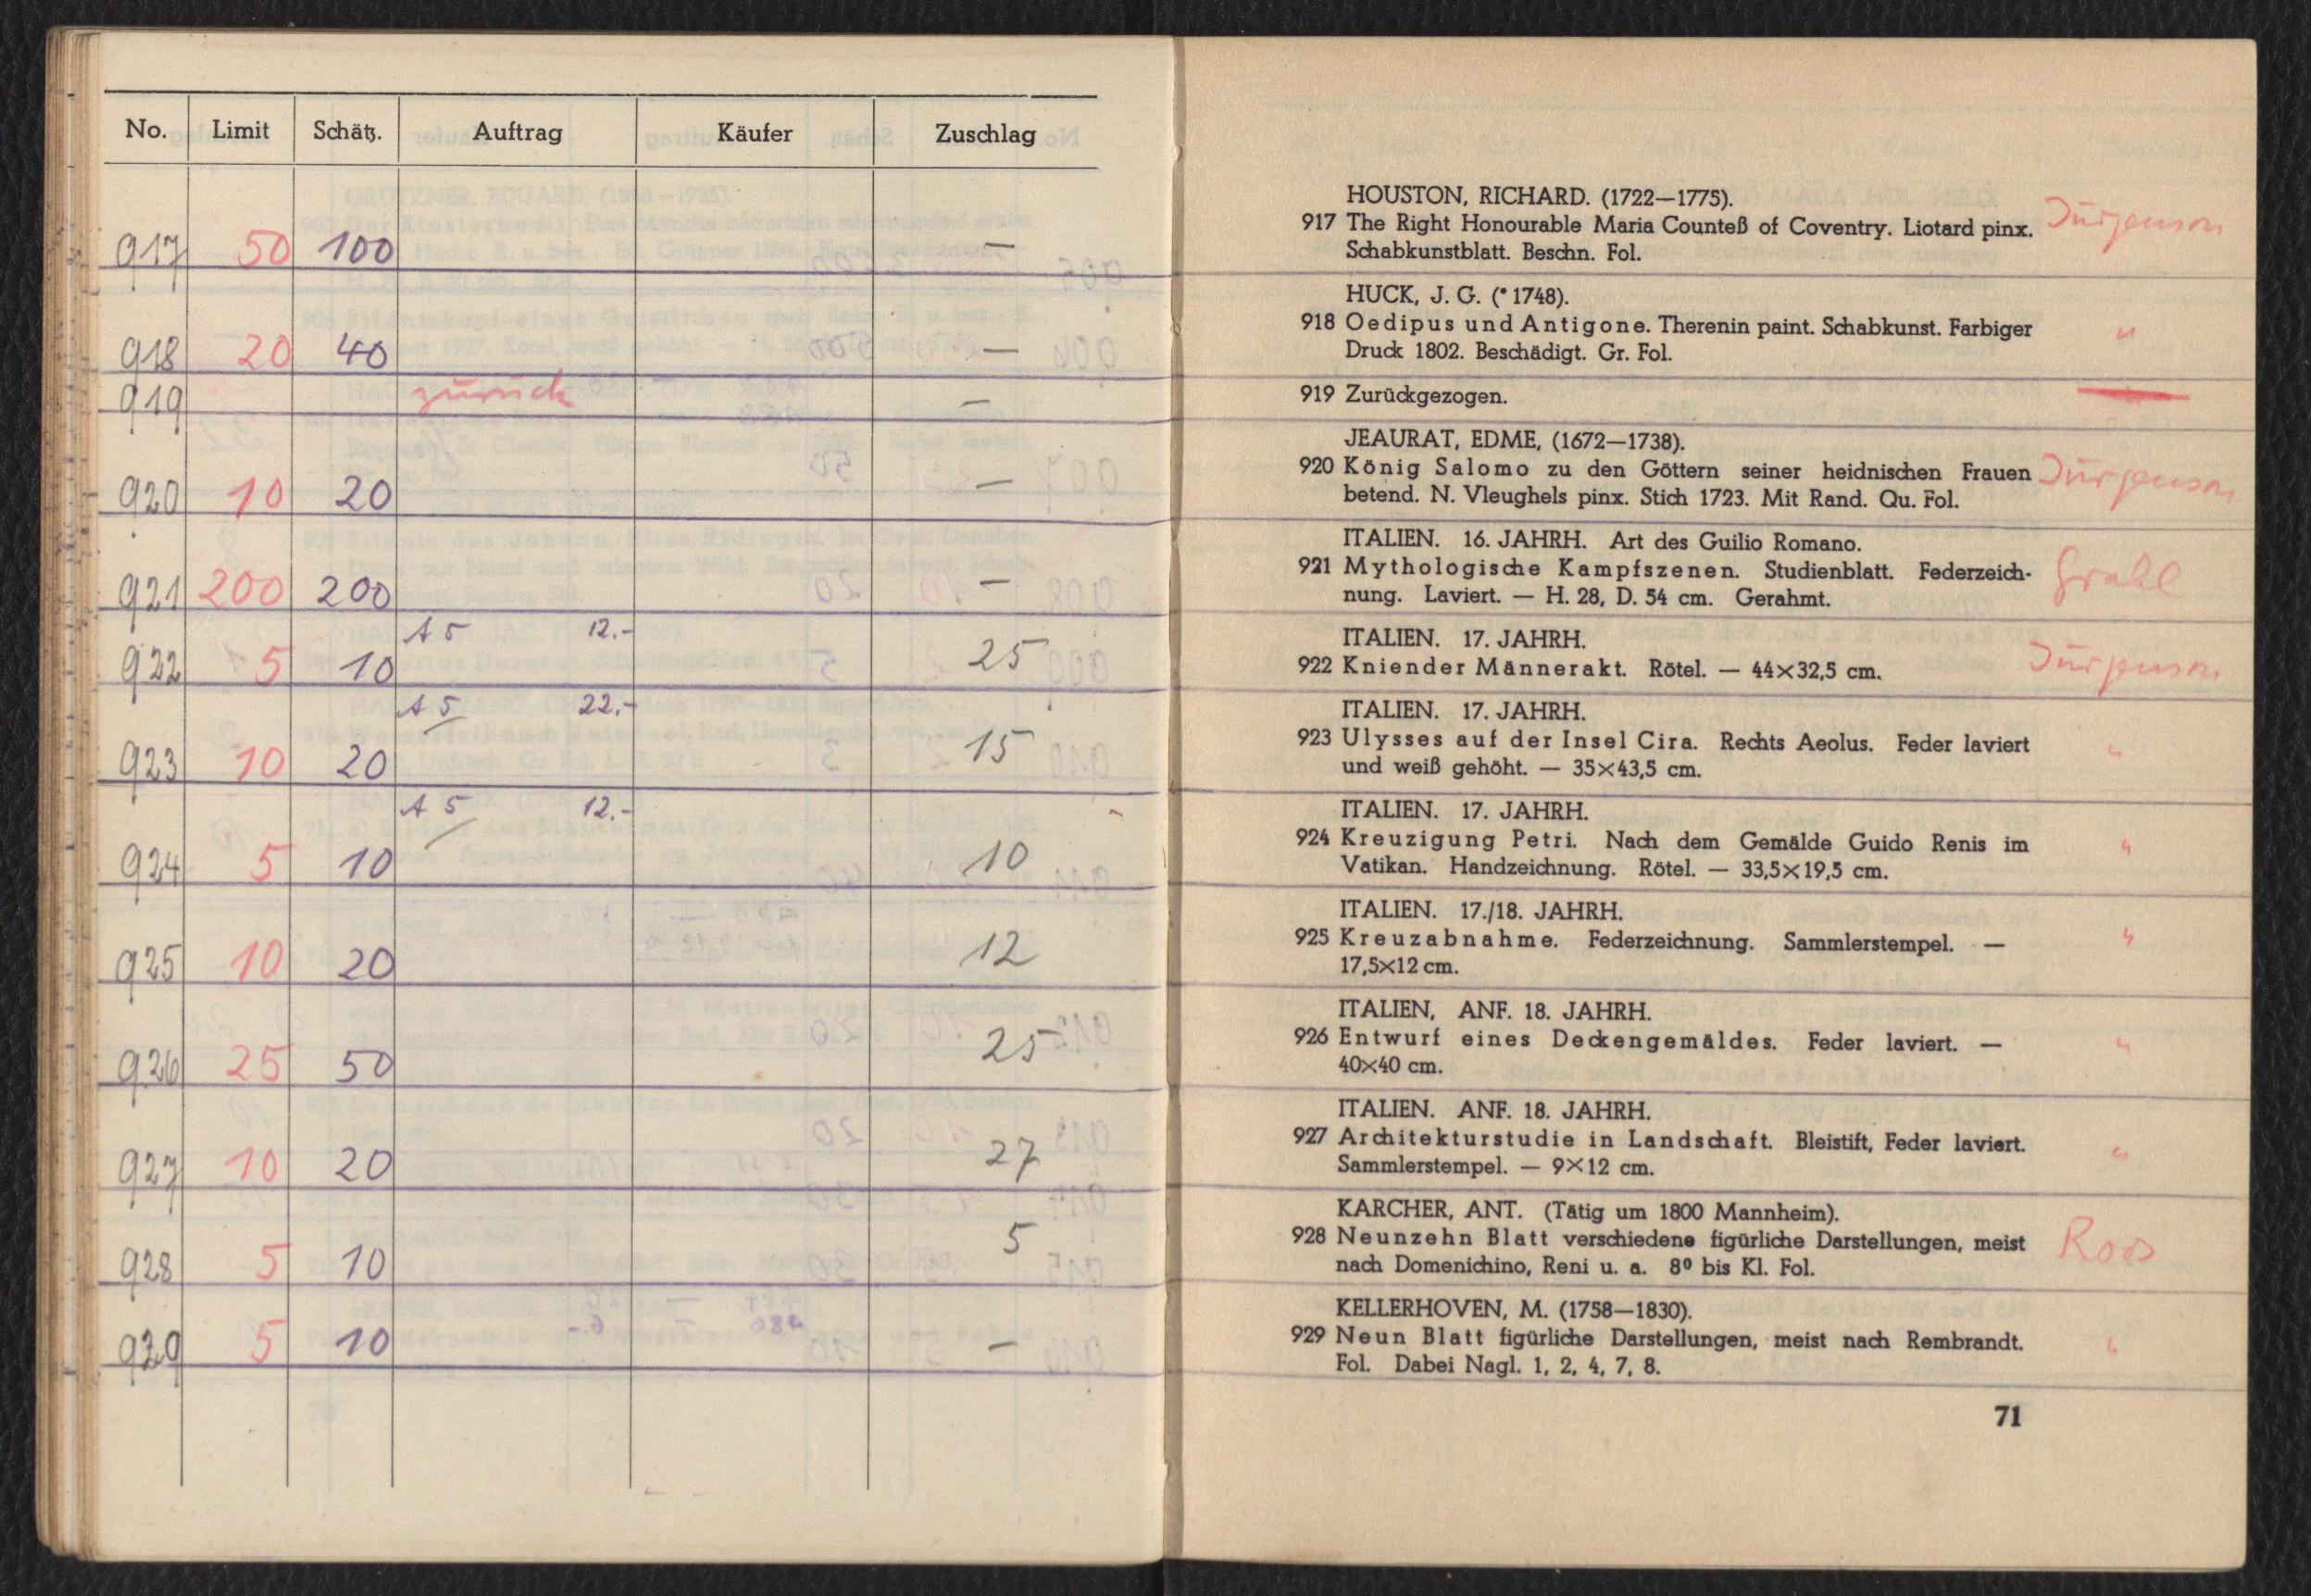 No. Limit Schätz. Auftrag Käufer Zuschlag
917 50 100 —
918 20 40 —
919 zurück —
920 10 20 —
921 200 200 —
A 5 12.-
922 5 10 25
A 5 22.-
923 10 20 15
A 5 12.-
924 5 10 10
925 10 20 12
926 25 50 25
927 10 20 27
928 5 10 5
929 5 10 —
HOUSTON, RICHARD. (1722—1775).
917 The Right Honourable Maria Counteß of Coventry. Liotard pinx. Jürgenson
Schabkunstblatt. Beschn. Fol.
HUCK, J. G. (* 1748).
918 Oedipus und Antigone. Therenin paint. Schabkunst. Farbiger "
Druck 1802. Beschädigt. Gr. Fol.
919 Zurückgezogen.
JEAURAT, EDME, (1672—1738).
920 König Salomo zu den Göttern seiner heidnischen Frauen Jürgenson
betend. N. Vleughels pinx. Stich 1723. Mit Rand. Qu. Fol.
ITALIEN. 16. JAHRH. Art des Guilio Romano.
921 Mythologische Kampfszenen. Studienblatt. Federzeich- Grahl
nung. Laviert. — H. 28, D. 54 cm. Gerahmt.
ITALIEN. 17. JAHRH.
922 Kniender Männerakt. Rötel. — 44×32,5 cm. Jürgenson
ITALIEN. 17. JAHRH.
923 Ulysses auf der Insel Cira. Rechts Aeolus. Feder laviert "
und weiß gehöht. — 35×43,5 cm.
ITALIEN. 17. JAHRH.
924 Kreuzigung Petri. Nach dem Gemälde Guido Renis im "
Vatikan. Handzeichnung. Rötel. — 33,5×19,5 cm.
ITALIEN. 17./18. JAHRH.
925 Kreuzabnahme. Federzeichnung. Sammlerstempel. — "
17,5×12 cm.
ITALIEN, ANF. 18. JAHRH.
926 Entwurf eines Deckengemäldes. Feder laviert. — "
40×40 cm.
ITALIEN. ANF. 18. JAHRH.
927 Architekturstudie in Landschaft. Bleistift, Feder laviert. "
Sammlerstempel. — 9×12 cm.
KARCHER, ANT. (Tätig um 1800 Mannheim).
928 Neunzehn Blatt verschiedene figürliche Darstellungen, meist Roos
nach Domenichino, Reni u. a. 8⁰ bis Kl. Fol.
KELLERHOVEN, M. (1758—1830).
929 Neun Blatt figürliche Darstellungen, meist nach Rembrandt. "
Fol. Dabei Nagl. 1, 2, 4, 7, 8.
71